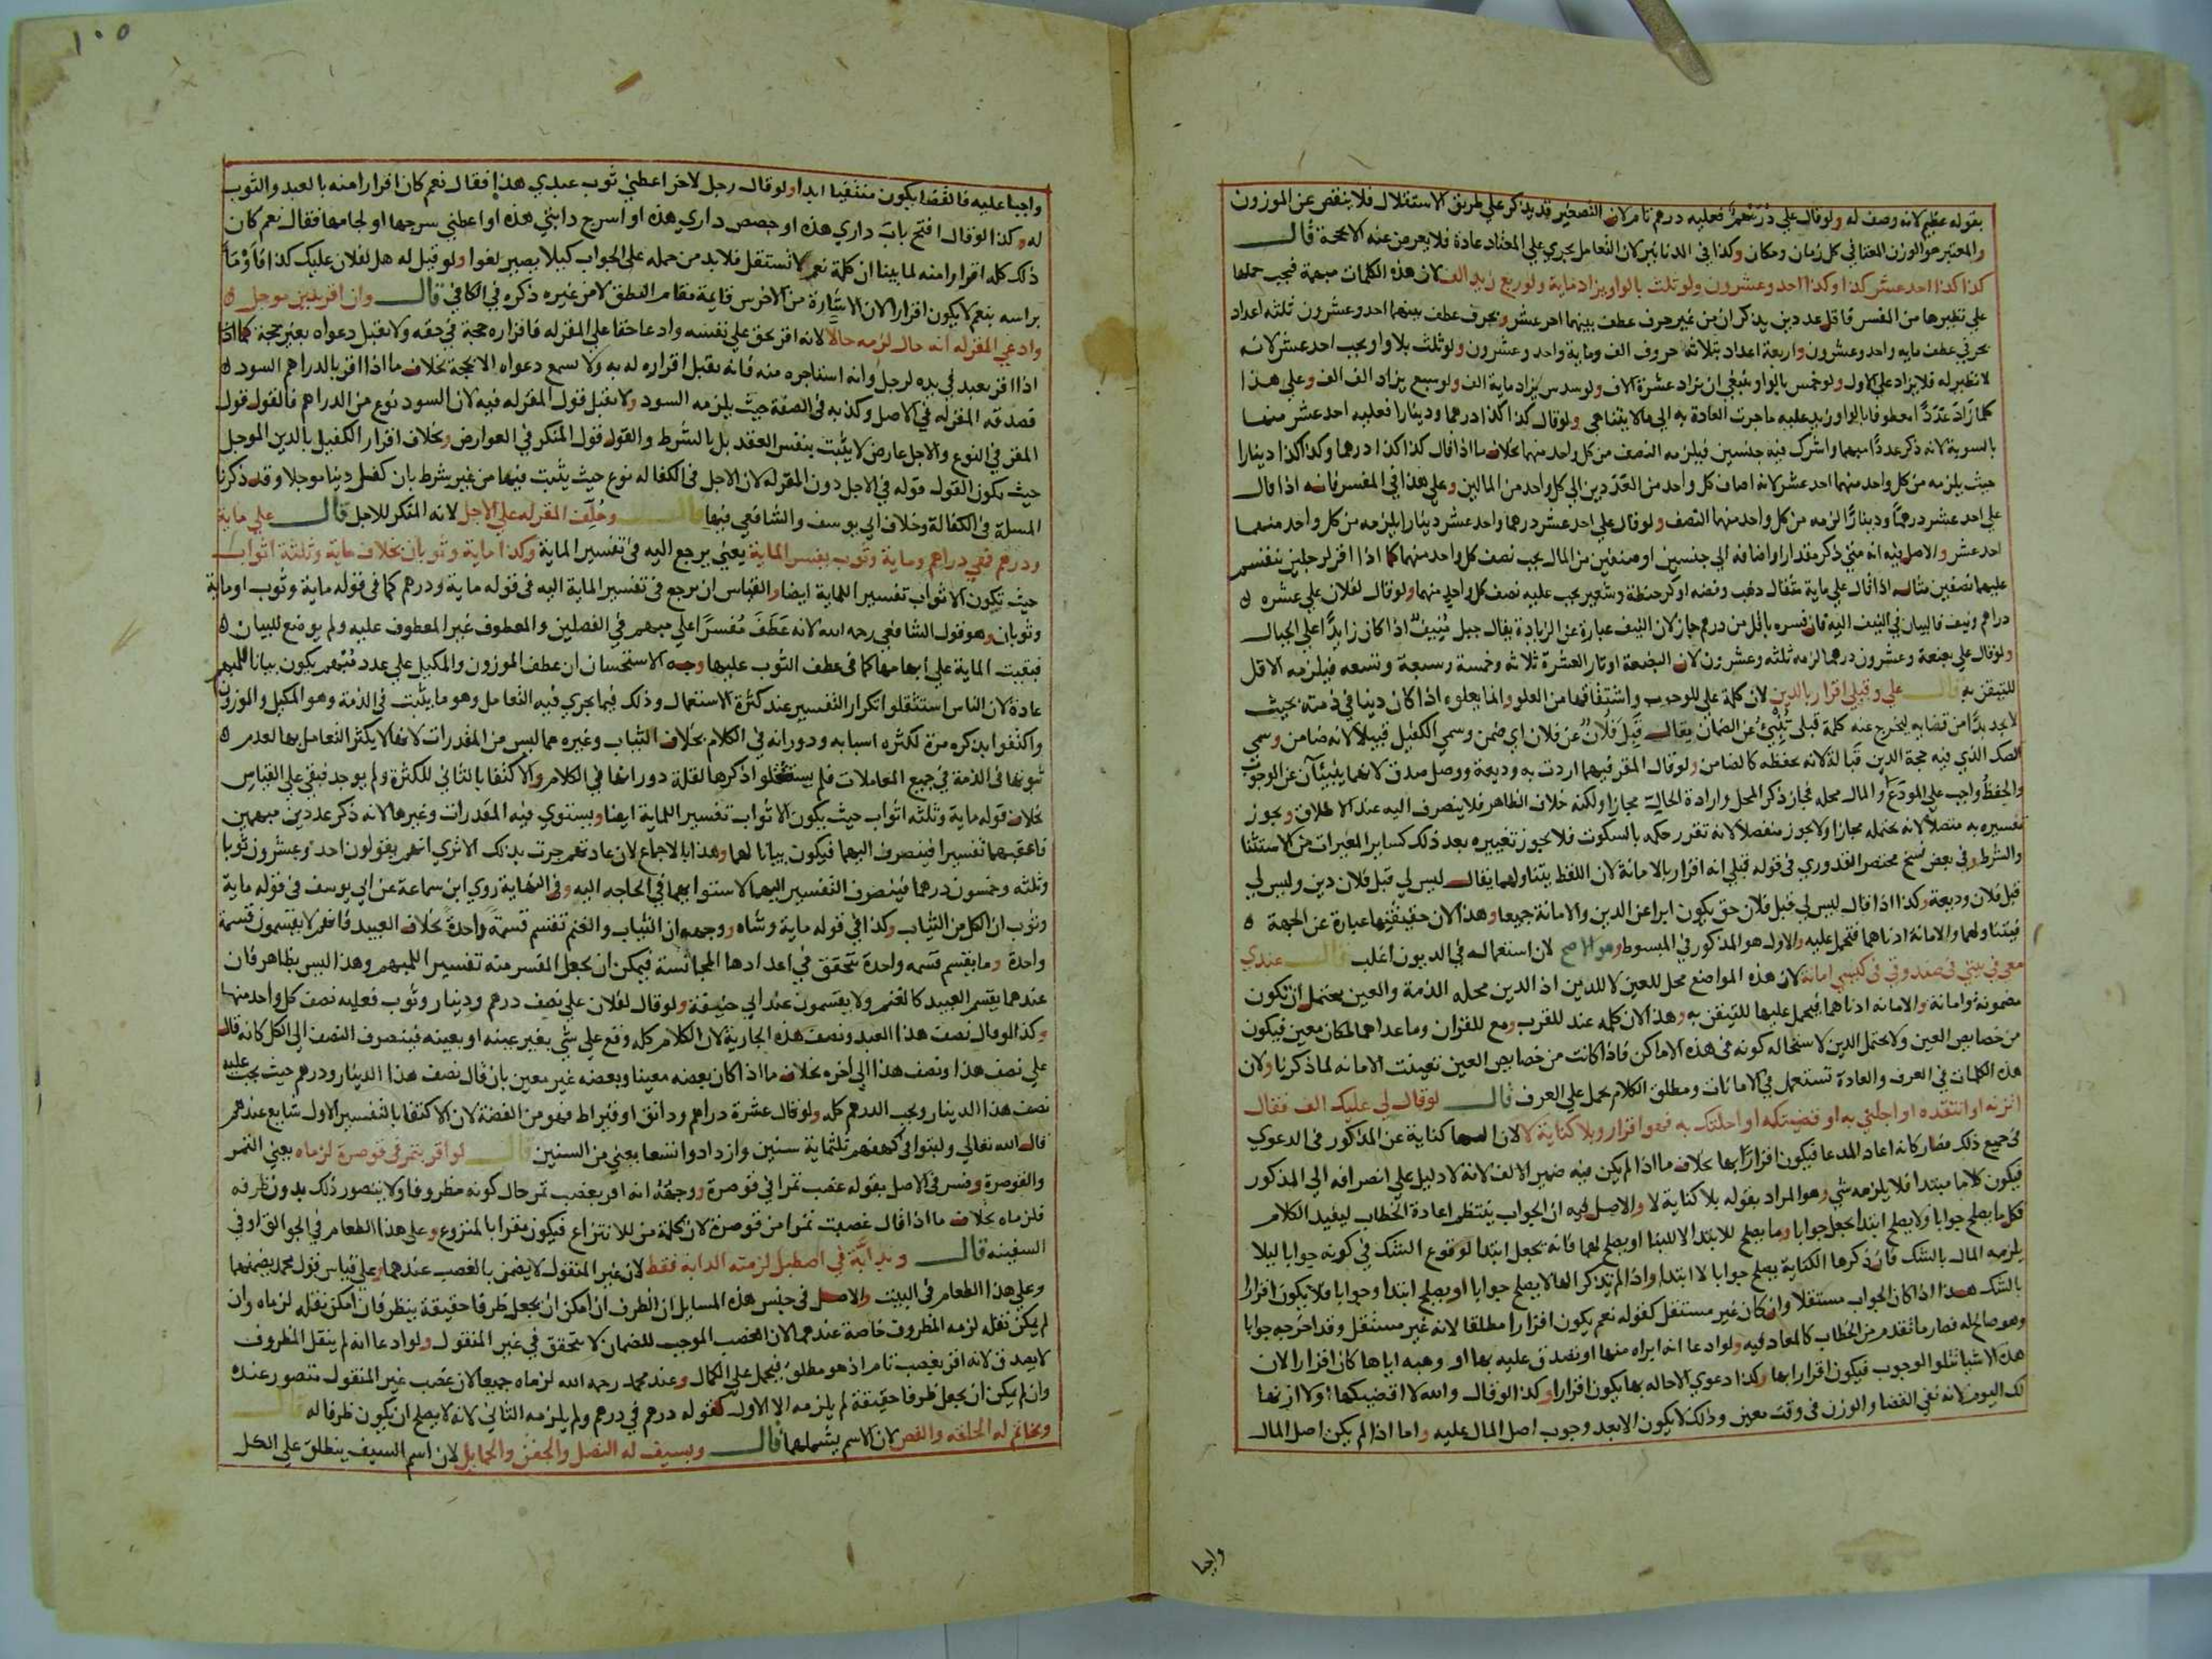 بقوله عظيم لانه وصف له ولو قال علي دُرَيْهم فعليه درهم تام لان التصغير قد يذكر علي طريق الاستقلال فلا ينقص عن الموزون
والمعتبر هو الوزن المعتاد في كل زمان ومكان وكذا في الدنانير لان التعامل يجري علي المعتاد عادة فلا يعرض عنه الا بحجة قال
كذا كذا احد عشر كذا وكذا احد وعشرون ولو ثلث بالواو يزاد ماية ولو ربع زيد الف لان هذه الكلمات مبهمة فيجب حملها
علي نظيرها من المفسر فاقل عددين يذكران من غير حرف عطف بينهما احد عشر وبحرف عطف بينهما احد وعشرون ثلثه اعداد
بحرفي عطف مايه واحد وعشرون واربعة اعداد بثلاثة حروف الف وماية واحد وعشرون ولو ثلث بلا واو يجب احد عشر لانه
لا نظير له فلا يزاد علي الاول ولو خمس بالواو ينبغي ان يزاد عشرة الاف ولو سدس يزاد ماية الف ولو سبع يزاد الف الف وعلي هذا
كلما زاد عددًا معطوفا بالواو زيد عليه ما جرت العادة به الي ما لا يتناهي ولو قال كذا كذا درهما ودينارا فعليه احد عشر منهما
بالسوية لانه ذكر عددًا مبهما واشرك فيه جنسين فيلزمه النصف من كل واحد منهما بخلاف ما اذا قال كذا كذا درهما وكذا كذا دينارا
حيث يلزمه من كل واحد منهما احد عشر لانه اضاف كل واحد من العددين الي كل واحد من المالين وعلي هذا في المفسر فانه اذا قال
علي احد عشر درهمًا ودينارًا لزمه من كل واحد منهما النصف ولو قال علي احد عشر درهما واحد عشر دينارا يلزمه من كل واحد منهما
احد عشر والاصل فيه انه متي ذكر مقدارا واضافه الي جنسين او صنفين من المال يجب نصف كل واحد منهما كما اذا اقر لرجلين ينقسم
عليهما نصفين مثاله اذا قال علي ماية مثقال ذهب وفضه او كر حنطة وشعير يجب عليه نصف كل واحد منهما ولو قال لفلان علي عشره
دراهم ونيف فالبيان في النيف اليه فان فسره باقل من درهم جاز لان النيف عبارة عن الزيادة يقال جبل منيف اذا كان زايدًا علي الجبال
ولو قال علي بضعة وعشرون درهما لزمه ثلثه وعشرون لان البضعة اوتار العشرة ثلاثه وخمسة وسبعة وتسعه فيلزمه الاقل
للتيقن به قال علي وقبلي اقرار بالدين لان كلمة علي للوجوب واشتقاقها من العلو وانما يعلوه اذا كان دينا في ذمته بحيث
لا يجد بدًا من قضايه ليخرج عنه كلمة قبلي تُنبيُ عن الضمان يقال قَبِلَ فلانٌ عن فلان اي ضمن وسمي الكفيل قبيلا لانه ضامن وسمي
الصك الذي فيه حجة الدين قبالة لانه بحفظه كالضامن ولو قال المقر فيهما اردت به وديعة ووصل صدق لانهما ينبيئان عن الوجوب
والحفظُ واجب علي المودَع والمال محله فجاز ذكر المحل وارادة الحالية مجازا ولكنه خلاف الظاهر فلا ينصرف اليه عند الاطلاق ويجوز
تفسيره به متصلا لانه يحتمله مجازا ولا يجوز منفصلا لانه تقرر حكمه بالسكوت فلا يجوز تغييره بعد ذلك كساير المغيرات من الاستثنا
والشرط وفي بعض نسخ مختصر القدوري في قوله قبلي انه اقرار بالامانة لان اللفظ يتناولهما يقال ليس لي قبل فلان دين وليس لي
قبل فلان وديعة وكذا اذا قال ليس لي قبل فلان حق يكون ابرا عن الدين والامانة جميعا وهذا لان حقيقتها عبارة عن الجهة
فيتناولهما والامانة ادناهما فتحمل عليه والاول هو المذكور في المبسوط وهو الاصح لان استعماله في الديون اغلب قال عندي
معي في بيتي في صندوقي في كيسي امانة لان هذه المواضع محل للعين لا للدين اذ الدين محله الذمة والعين يحتمل ان تكون
مضمونة وامانة والامانه ادناهما فيحمل عليها للتيقن به وهذا لان كلمه عند للقرب ومع للقران وما عداهما لمكان معين فيكون
من خصايص العين ولا يحتمل الدين لاستحاله كونه في هذه الاماكن فاذا كانت من خصايص العين تعينت الامانه لما ذكرنا ولان
هذه الكلمات في العرف والعادة تستعمل في الامانات ومطلق الكلام يحمل علي العرف قال لو قال لي عليك الف فقال
اتزنه او انتقده او اجلني به او قضيتكه او احلتك به فهو اقرار وبلا كناية لا لان الها كناية عن المذكور في الدعوي
في جميع ذلك فصار كانه اعاد المدعا فيكون اقرارًا بها بخلاف ما اذا لم يكن فيه ضمير الالف لانه لا دليل علي انصرافه الي المذكور
فيكون كلاما مبتدا فلا يلزمه شي وهو المراد بقوله بلا كناية لا والاصل فيه ان الجواب ينتظم اعادة الخطاب ليفيد الكلام
فكل ما يصلح جوابا ولا يصلح ابتدا يجعل جوابا وما يصلح للابتدا لا للبنا او يصلح لهما فانه يجعل ابتدا لوقوع الشك في كونه جوابا ليلا
يلزمه المال بالشك فان ذكرها الكناية يصلح جوابا لا ابتدا واذا لم يذكر الها لا يصلح جوابا او يصلح ابتدا وجوابا فلا يكون اقرارا
بالشك هذا اذا كان الجواب مستقلا وان كان غير مستقل كقوله نعم يكون اقرارا مطلقا لانه غير مستقل وقد اخرجه جوابا
وهو صالح له فصار ما تقدم من الخطاب كالمعاد فيه ولو ادعا انه ابراه منها او تصدق عليه بها او وهبه اياها كان اقرارا لان
هذه الاشيا تتلوا الوجوب فيكون اقرارا بها وكذا دعوي الاحاله بها يكون اقرارا وكذا لو قال والله لا اقضيكها او لا ازنها
لك اليوم لانه نفي القضا والوزن في وقت معين وذلك لا يكون الا بعد وجوب اصل المال عليه واما اذا لم يكن اصل المال
واجبا
١٠٥
واجبا عليه فالقضا يكون منتفيا ابدا ولو قال رجل لاخر اعطني ثوب عبدي هذا فقال نعم كان اقرارا منه بالعبد والثوب
له وكذا لو قال افتح باب داري هذه او جصص داري هذه او اسرج دابتي هذه او اعطني سرجها او لجامها فقال نعم كان
ذلك كله اقرارا منه لما بينا ان كلمة نعم لا تستقل فلا بد من حمله علي الجواب كيلا يصير لغوا ولو قيل له هل لفلان عليك كذا فاومأ
براسه بنعم لا يكون اقرارا لان الاشارة من الاخرس قايمة مقام النطق لا من غيره ذكره في الكافي قال وان اقر بدين موجل
وادعي المقر له انه حال لزمه حالا لانه اقر بحق علي نفسه وادعا حقا علي المقر له فاقراره حجة في حقه ولا تقبل دعواه بغير حجة كما اذا
اذا اقر بعبد في يده لرجل وانه استاجره منه فانه يقبل اقراره له به ولا تسمع دعواه الا بحجة بخلاف ما اذا اقر بالدراهم السود
فصدقه المقر له في الاصل وكذبه في الصفة حيث يلزمه السود ولا يقبل قول المقر له فيه لان السود نوع من الدراهم فالقول قول
المقر في النوع والاجل عارض لا يثبت بنفس العقد بل بالشرط والقول قول المنكر في العوارض وبخلاف اقرار الكفيل بالدين الموجل
حيث يكون القول قوله في الاجل دون المقر له لان الاجل في الكفاله نوع حيث يثبت فيها من غير شرط بان كفل دينا موجلا وقد ذكرنا
المسلة في الكفالة وخلاف ابي يوسف والشافعي فيها قال وحُلّف المقر له علي الاجل لانه المنكر للاجل قال علي ماية
ودرهم فهي دراهم وماية وثوب يفسر الماية يعني يرجع اليه في تفسير الماية وكذا ماية وثوبان بخلاف ماية وثلثة اثواب
حيث تكون الاثواب تفسيرا للماية ايضا والقياس ان يرجع في تفسير الماية اليه في قوله ماية ودرهم كما في قوله ماية وثوب او ماية
وثوبان وهو قول الشافعي رحمه الله لانه عَطَفَ مُفَسَّرًا علي مبهم في الفصلين والمعطوف غير المعطوف عليه ولم يوضع للبيان
فبقيت الماية علي ابهامها كما في عطف الثوب عليها وجه الاستحسان ان عطف الموزون والمكيل علي عدد مبهم يكون بيانا للمبهم
عادة لان الناس استثقلوا تكرار التفسير عند كثرة الاستعمال وذلك فيما يجري فيه التعامل وهو ما يثبت في الذمة وهو المكيل والموزون
واكتفوا بذكره مرة لكثره اسبابه ودورانه في الكلام بخلاف الثياب وغيره مما ليس من المقدرات لانها لا يكثر التعامل بها لعدم
ثبوتها في الذمة في جميع المعاملات فلم يستثقلوا ذكرها لقلة دورانها في الكلام والاكتفا بالثاني للكثرة ولم يوجد فبقي علي القياس
بخلاف قوله ماية وثلثه اثواب حيث يكون الاثواب تفسيرا للماية ايضا ويستوي فيه المقدرات وغيرها لانه ذكر عددين مبهمين
فاعقبهما تفسيرا فينصرف اليهما فيكون بيانا لهما وهذا بالاجماع لان عادتهم جرت بذلك الا تري انهم يقولون احد وعشرون ثوبا
وثلثه وخمسون درهما فينصرف التفسير اليهما لاستوايهما في الحاجه اليه وفي النهاية روي ابن سماعة عن ابي يوسف في قوله ماية
وثوب ان الكل من الثياب وكذا في قوله ماية وشاه ووجهه ان الثياب والغنم تقسم قسمة واحدة بخلاف العبيد فانهم لا يقسمون قسمة
واحدة وما يقسم قسمه واحدة يتحقق في اعدادها المجانسة فيمكن ان يجعل المفسر منه تفسيرا للمبهم وهذا ليس بظاهر فان
عندهما يقسم العبيد كالغنم ولا يقسمون عند ابي حنيفة ولو قال لفلان علي نصف درهم ودينار وثوب فعليه نصف كل واحد منها
وكذا لو قال نصف هذا العبد ونصف هذه الجارية لان الكلام كله وقع علي شي بغير عينه او بعينه فينصرف النصف الي الكل كانه قال
علي نصف هذا ونصف هذا الي اخره بخلاف ما اذا كان بعضه معينا وبعضه غير معين بان قال نصف هذا الدينار ودرهم حيث يجب عليه
نصف هذا الدينار ويجب الدرهم كله ولو قال عشرة دراهم ودانق او قيراط فهو من الفضة لان الاكتفا بالتفسير الاول شايع عندهم
قال الله تعالي ولبثوا في كهفهم ثلثماية سنين وازدادوا تسعا يعني من السنين قال لو اقر بتمر في قوصرة لزماه يعني التمر
والقوصرة وفسر في الاصل بقوله غصب تمرا في قوصرة ووجهه انه اقر بغصب تمر حال كونه مظروفا ولا يتصور ذلك بدون ظرفه
فلزماه بخلاف ما اذا قال غصبت تمرا من قوصرة لان كلمة من للانتزاع فيكون مقرا بالمنزوع وعلي هذا الطعام في الجوالق او في
السفينه قال وبدابّة في اصطبل لزمته الدابة فقط لان غير المنقول لا يضمن بالغصب عندهما وعلي قياس قول محمد يضمنهما
وعلي هذا الطعام في البيت والاصل في جنس هذه المسايل ان الظرف ان امكن ان يجعل ظرفا حقيقة ينظر فان امكن نقله لزماه وان
لم يمكن نقله لزمه المظروف خاصة عندهما لان الغصب الموجب للضمان لا يتحقق في غير المنقول ولو ادعا انه لم ينقل المظروف
لا يصدق لانه اقر بغصب تام اذ هو مطلق فيحمل علي الكمال وعند محمد رحمه الله لزماه جميعا لان غصب غير المنقول متصور عنده
وان لم يكن ان يجعل ظرفا حقيقة لم يلزمه الا الاول كقوله درهم في درهم ولم يلزمه الثاني لانه لا يصلح ان يكون ظرفا له قال
وبخاتم له الحلقه والفص لان الاسم يشملهما قال وبسيف له النصل والجفن والحمايل لان اسم السيف ينطلق علي الكل